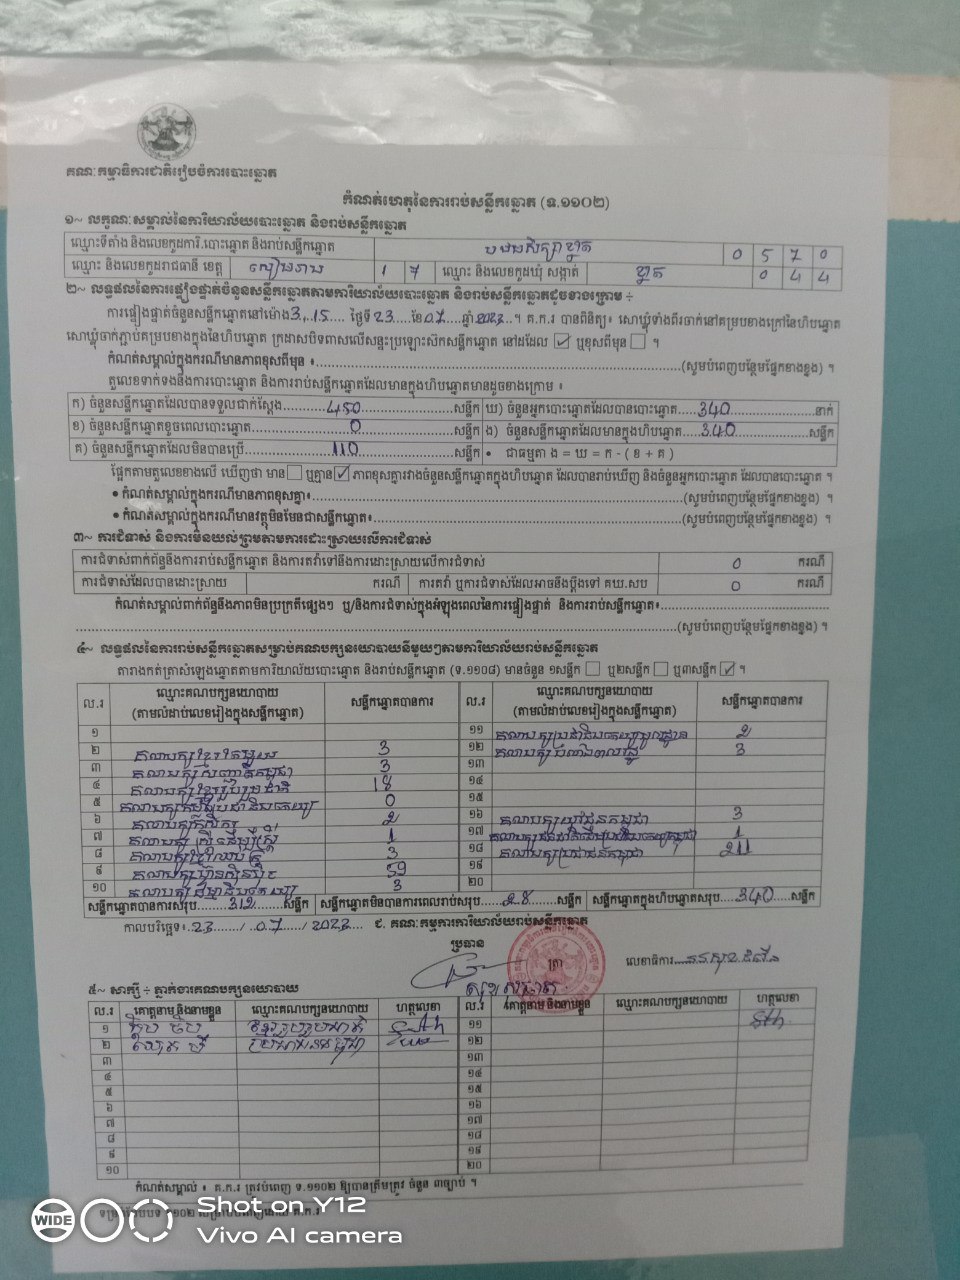 គណៈកម្មាធិការជាតិរៀបចំការបោះឆ្នោត
កំណត់ហេតុនៃការរាប់សន្លឹកឆ្នោត (ទ.១១០២)
១~ លក្ខណៈសម្គាល់នៃការិយាល័យបោះឆ្នោត និងរាប់សន្លឹកឆ្នោត
ឈ្មោះទីតាំង និងលេខកូដការិ.បោះឆ្នោត និងរាប់សន្លឹកឆ្នោត 0 5 7 0
ឈ្មោះ និងលេខកូដរាជធានី ខេត្ត សៀមរាប 1 7 ឈ្មោះ និងលេខកូដឃុំ សង្កាត់ 0 4 4
២~ លទ្ធផលនៃការផ្ទៀងផ្ទាត់ចំនួនសន្លឹកឆ្នោតតាមការិយាល័យបោះឆ្នោត និងរាប់សន្លឹកឆ្នោតដូចខាងក្រោម ÷
ការផ្ទៀងផ្ទាត់ចំនួនសន្លឹកឆ្នោតនៅម៉ោង 3:15 ថ្ងៃទី 23 ខែ 07 ឆ្នាំ 2023 ។ គ.ក.រ បានពិនិត្យ៖ សោឃ្លុំទាំងពីរចាក់នៅគម្របខាងក្រៅនៃហិបឆ្នោត
សោឃ្លុំចាក់ភ្ជាប់គម្របខាងក្នុងនៃហិបឆ្នោត ក្រដាសបិទពាសលើសន្ទះប្រឡោះស៊កសន្លឹកឆ្នោត នៅដដែល ☑ ឬខុសពីមុន ☐ ។
កំណត់សម្គាល់ក្នុងករណីមានភាពខុសពីមុន ៖ (សូមបំពេញបន្ថែមផ្នែកខាងខ្នង) ។
តួលេខទាក់ទងនឹងការបោះឆ្នោត និងការរាប់សន្លឹកឆ្នោតដែលមានក្នុងហិបឆ្នោតមានដូចខាងក្រោម ៖
ក) ចំនួនសន្លឹកឆ្នោតដែលបានទទួលជាក់ស្តែង 450 សន្លឹក ឃ) ចំនួនអ្នកបោះឆ្នោតដែលបានបោះឆ្នោត 340 នាក់
ខ) ចំនួនសន្លឹកឆ្នោតខូចពេលបោះឆ្នោត 0 សន្លឹក ង) ចំនួនសន្លឹកឆ្នោតដែលមានក្នុងហិបឆ្នោត 340 សន្លឹក
គ) ចំនួនសន្លឹកឆ្នោតដែលមិនបានប្រើ 110 សន្លឹក • ជាធម្មតា ង = ឃ = ក - ( ខ + គ )
ផ្អែកតាមតួលេខខាងលើ ឃើញថា មាន ☐ ឬគ្មាន ☑ ភាពខុសគ្នារវាងចំនួនសន្លឹកឆ្នោតក្នុងហិបឆ្នោត ដែលបានរាប់ឃើញ និងចំនួនអ្នកបោះឆ្នោត ដែលបានបោះឆ្នោត ។
• កំណត់សម្គាល់ក្នុងករណីមានភាពខុសគ្នា៖ (សូមបំពេញបន្ថែមផ្នែកខាងខ្នង) ។
• កំណត់សម្គាល់ក្នុងករណីមានវត្ថុមិនមែនជាសន្លឹកឆ្នោត៖ (សូមបំពេញបន្ថែមផ្នែកខាងខ្នង) ។
៣~ ការជំទាស់ និងការមិនយល់ព្រមតាមការដោះស្រាយលើការជំទាស់
ការជំទាស់ពាក់ព័ន្ធនឹងការរាប់សន្លឹកឆ្នោត និងការតវ៉ាទៅនឹងការដោះស្រាយលើការជំទាស់ 0 ករណី
ការជំទាស់ដែលបានដោះស្រាយ ករណី ការតវ៉ា ឬការជំទាស់ដែលអាចនឹងប្តឹងទៅ គឃ.សប 0 ករណី
កំណត់សម្គាល់ពាក់ព័ន្ធនឹងភាពមិនប្រក្រតីផ្សេងៗ ឬ/និងការជំទាស់ក្នុងអំឡុងពេលនៃការផ្ទៀងផ្ទាត់ និងការរាប់សន្លឹកឆ្នោត៖
(សូមបំពេញបន្ថែមផ្នែកខាងខ្នង) ។
៤~ លទ្ធផលនៃការរាប់សន្លឹកឆ្នោតសម្រាប់គណបក្សនយោបាយនីមួយៗតាមការិយាល័យរាប់សន្លឹកឆ្នោត
តារាងកត់ត្រាសំឡេងឆ្នោតតាមការិយាល័យបោះឆ្នោត និងរាប់សន្លឹកឆ្នោត (ទ.១១០៨) មានចំនួន ១សន្លឹក ☐ ឬ២សន្លឹក ☐ ឬ៣សន្លឹក ☑ ។
ល.រ ឈ្មោះគណបក្សនយោបាយ (តាមលំដាប់លេខរៀងក្នុងសន្លឹកឆ្នោត) សន្លឹកឆ្នោតបានការ ល.រ ឈ្មោះគណបក្សនយោបាយ (តាមលំដាប់លេខរៀងក្នុងសន្លឹកឆ្នោត) សន្លឹកឆ្នោតបានការ
១ ១១ គណបក្សប្រជាធិបតេយ្យមូលដ្ឋាន 2
២ គណបក្សខ្មែរតែមួយ 3 ១២ 3
៣ គណបក្សសញ្ជាតិកម្ពុជា 3 ១៣
៤ គណបក្សខ្មែររួបរួមជាតិ 18 ១៤
៥ 0 ១៥
៦ គណបក្សកសិករ 2 ១៦ គណបក្សយុវជនកម្ពុជា 3
៧ គណបក្សស្ត្រីដើម្បីស្ត្រី 1 ១៧ 1
៨ គណបក្សខ្មែរឈប់ក្រ 3 ១៨ គណបក្សប្រជាជនកម្ពុជា 211
៩ គណបក្សហ៊្វុនស៊ិនប៉ិច 59 ១៩
១០ គណបក្សធម្មាធិបតេយ្យ 3 ២០
សន្លឹកឆ្នោតបានការសរុប 312 សន្លឹក សន្លឹកឆ្នោតមិនបានការពេលរាប់សរុប 28 សន្លឹក សន្លឹកឆ្នោតក្នុងហិបឆ្នោតសរុប 340 សន្លឹក
កាលបរិច្ឆេទ៖ 23 / 07 / 2023 ជ. គណៈកម្មការការិយាល័យរាប់សន្លឹកឆ្នោត
ប្រធាន
ត្រា លេខាធិការ
៥~ សាក្សី ÷ ភ្នាក់ងារគណបក្សនយោបាយ
ល.រ គោត្តនាម និងនាមខ្លួន ឈ្មោះគណបក្សនយោបាយ ហត្ថលេខា ល.រ គោត្តនាម និងនាមខ្លួន ឈ្មោះគណបក្សនយោបាយ ហត្ថលេខា
១ ខ្មែររួបរួមជាតិ ១១
២ ប្រជាជនកម្ពុជា ១២
៣ ១៣
៤ ១៤
៥ ១៥
៦ ១៦
៧ ១៧
៨ ១៨
៩ ១៩
១០ ២០
កំណត់សម្គាល់ ៖ គ.ក.រ ត្រូវបំពេញ ទ.១១០២ ឱ្យបានត្រឹមត្រូវ ចំនួន ៣ច្បាប់ ។
WIDE Shot on Y12
Vivo AI camera